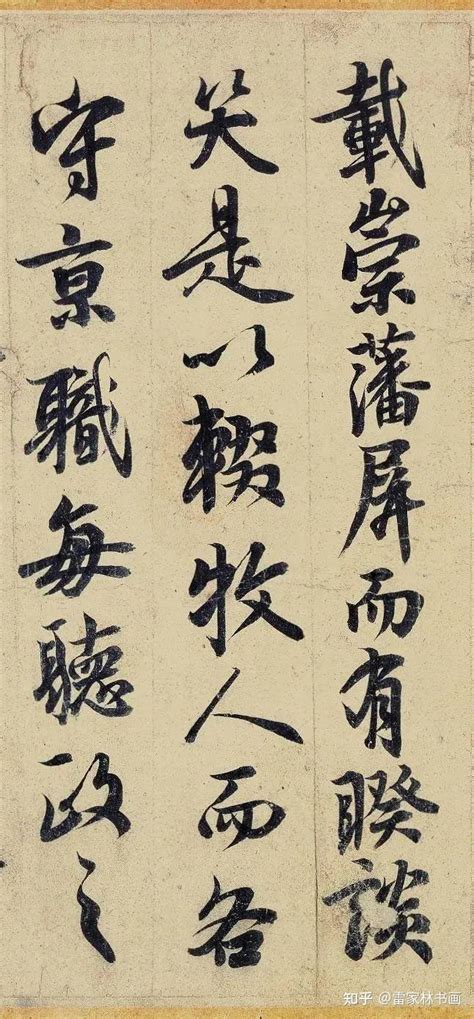 載崇藩屏而有暌談
笑是以輟牧人而各
守京職每聽政之
知乎 @雷家林书画